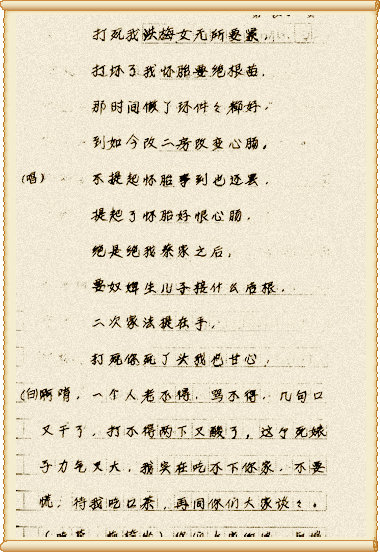 打死我洪梅女无所要累,
打坏了我怀胎要绝根苗,
那时间做了坏件々都好,
到如今改二房改变心肠。
(唱) 不提起怀胎事到也还罢,
提起了怀胎好恨心肠,
绝是绝我蔡家之后,
要奴婢生儿子接什么后根,
二次家法提在手,
打死你死了头我也甘心,
(白)啊唷,一个人老不得,骂不得,几句口
又干了,打不得两下又酸了,这个死娘
子力气又大,我实在吃不下你家,不要
慌,待我吃口茶,再同你们大家谈々。